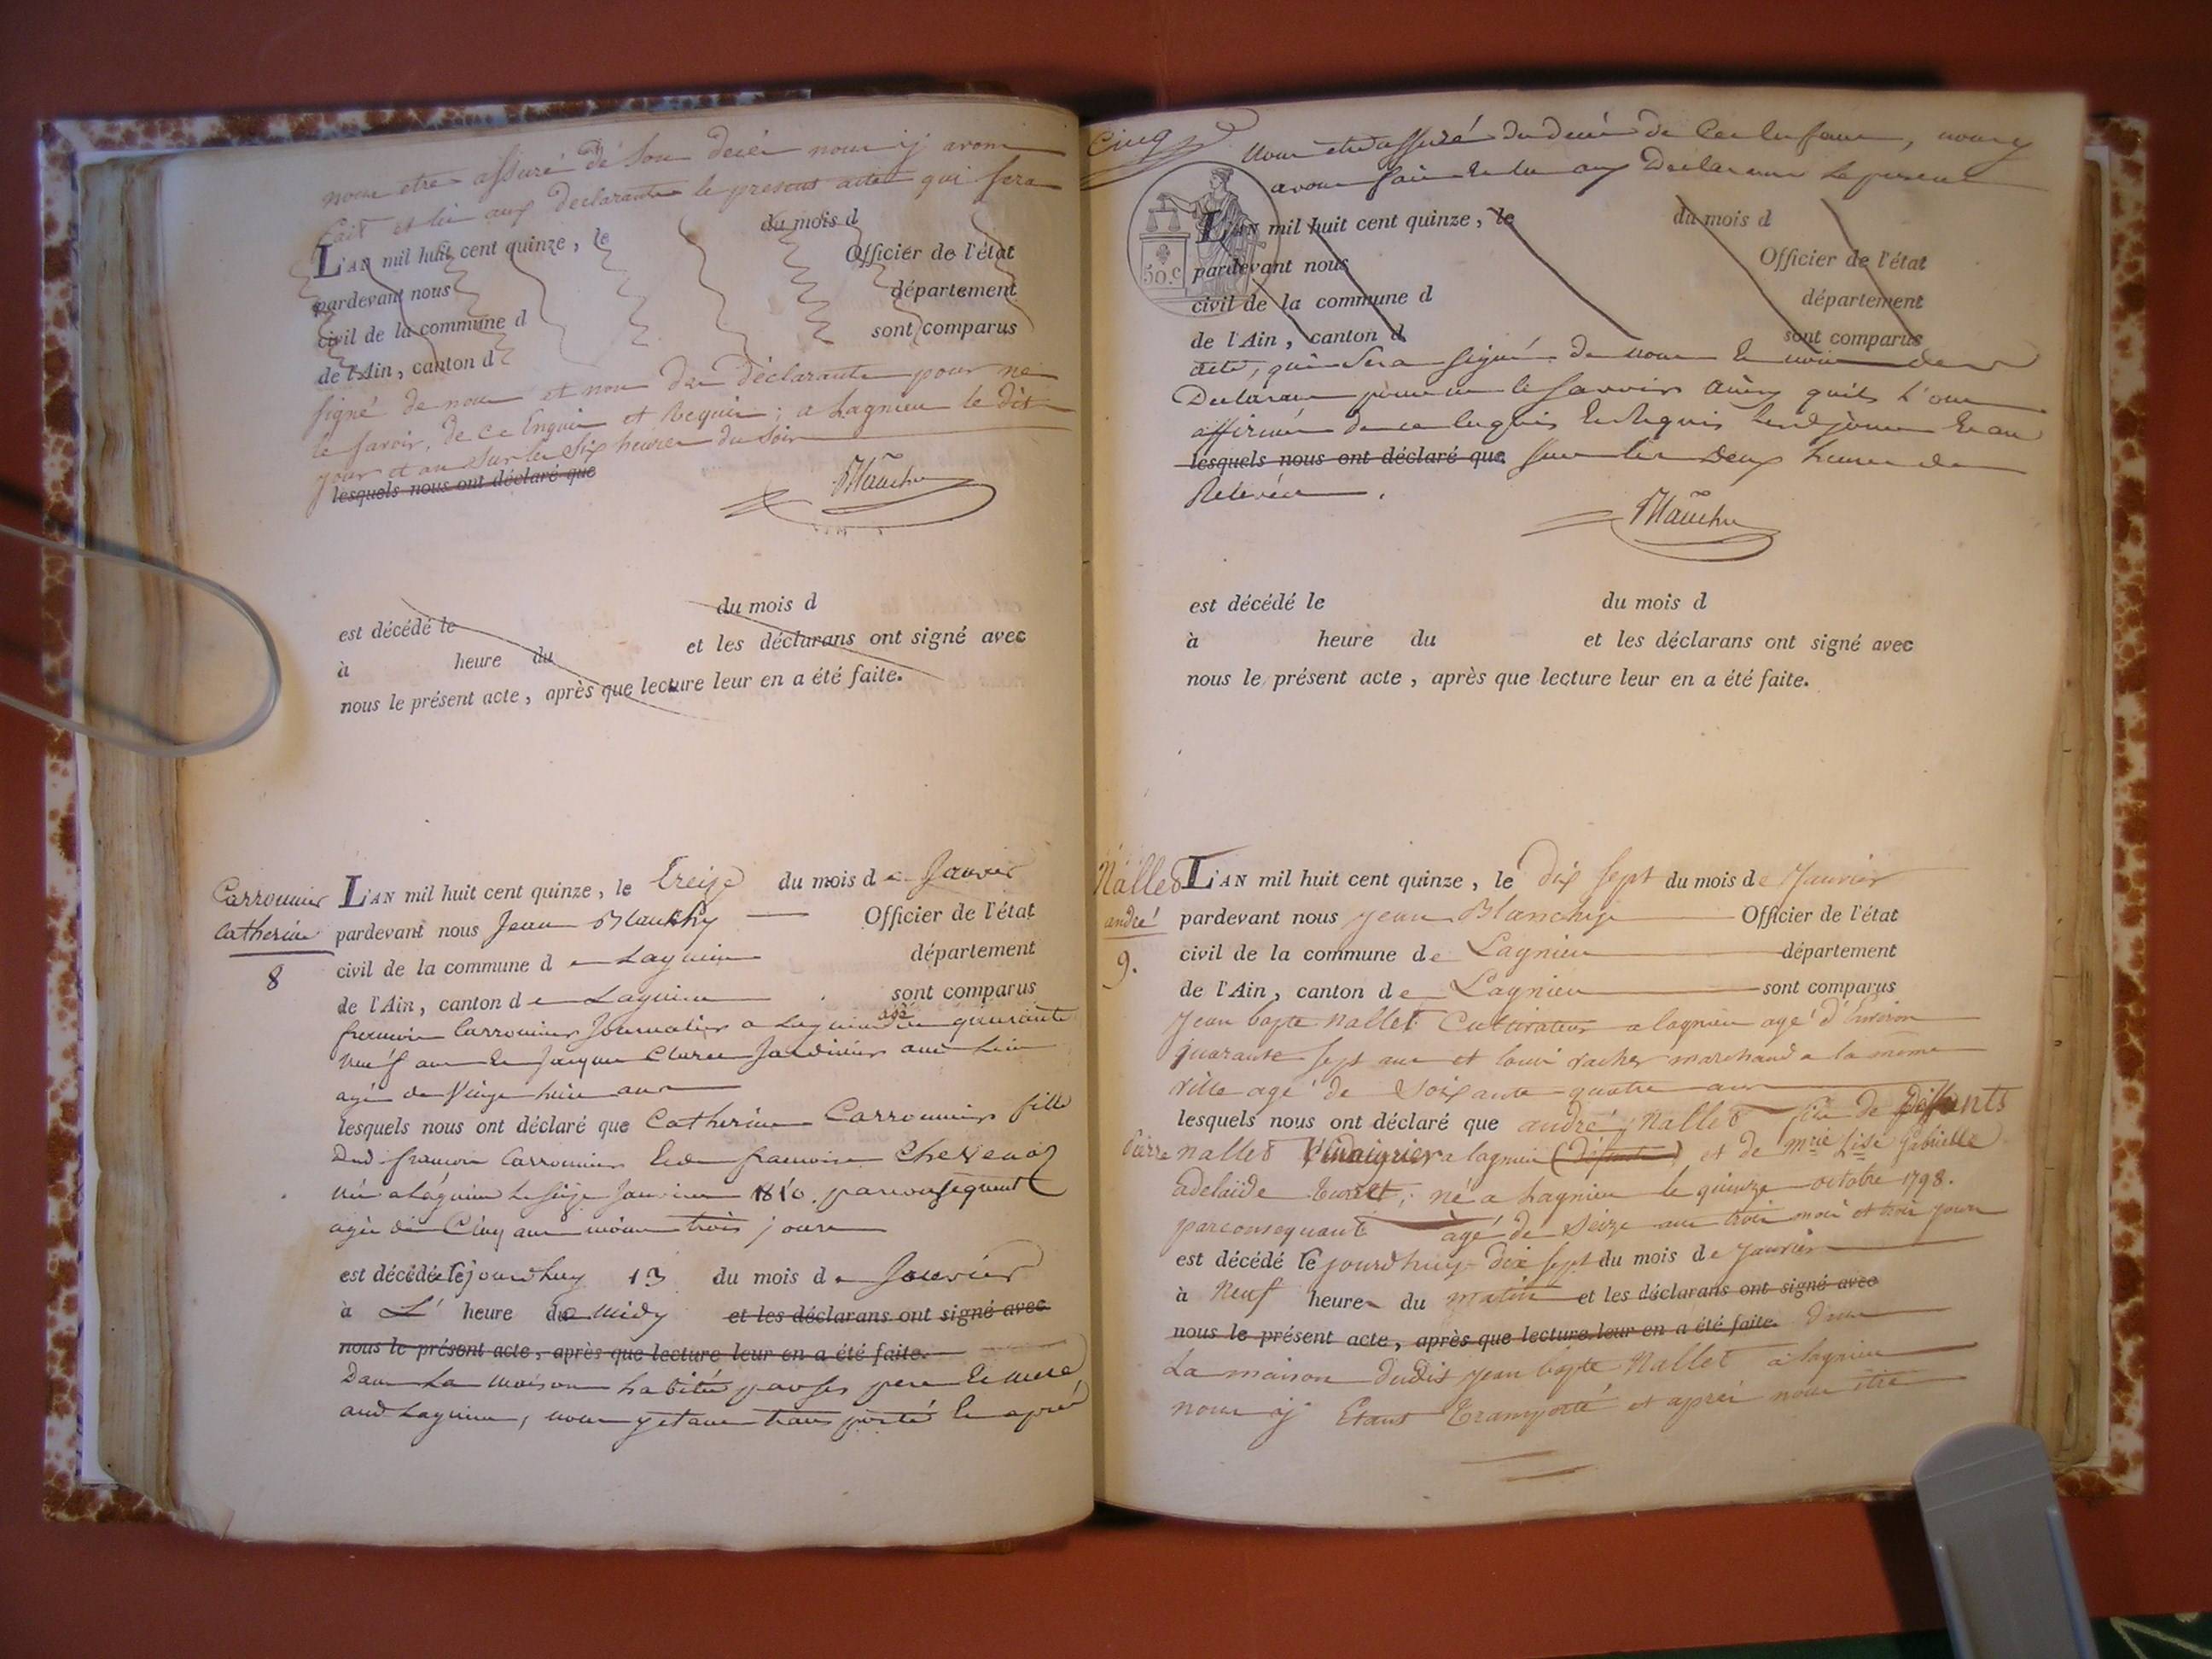 nous etre assuré de son decès nous y avons
fait et lu aux declarants le present acte qui sera
L'AN mil huit cent quinze, le du mois d
pardevant nous Officier de l'état
civil de la commune d département
de l'Ain, canton d sont comparus
signé de nous et non des déclarants pour ne
le savoir, de ce Enquis et Requis; a Lagnieu le dit
jour et an sur les six heures du soir
lesquels nous ont déclaré que
est décédé le du mois d
à heure du et les déclarans ont signé avec
nous le présent acte, après que lecture leur en a été faite.
Carronnier
Catherine
8
L'AN mil huit cent quinze, le treize du mois de Janvier
pardevant nous Jean Blanchy Officier de l'état
civil de la commune de Lagnieu département
de l'Ain, canton de Lagnieu sont comparus
francois Carronnier Journalier a Lagnieu agé de quarante
neuf ans et Jacques Jardinier aud. lieu
agé de vingt huit ans
lesquels nous ont déclaré que Catherine Carronnier fille
dud. francois Carronnier et de francoise
née a Lagnieu le seize Janvier 1810. par consequent
agée de Cinq ans moins trois jours
est décédée le jourdhuy 13 du mois de Janvier
à L' heure de Midy et les déclarans ont signé avec
nous le présent acte, après que lecture leur en a été faite.
Dans la maison habitée par ses pere et mere
aud. Lagnieu, nous y etant transporté et après
Cinq
Nous etre assuré du decès de Cet Enfant, nous y
avons fait et lu aux Declarans le present
50.c
L'AN mil huit cent quinze, le du mois d
pardevant nous Officier de l'état
civil de la commune d département
de l'Ain, canton d sont comparus
acte, qui sera signé de nous et non des
Declarans pour ne le savoir ainsy quils l'ont
affirmé de ce Enquis et Requis lesd. jour et an
lesquels nous ont déclaré que sur les Deux heures de
Relevée.
est décédé le du mois d
à heure du et les déclarans ont signé avec
nous le présent acte, après que lecture leur en a été faite.
Nallet
andré
9.
L'AN mil huit cent quinze, le dix sept du mois de Janvier
pardevant nous jean Blanchy Officier de l'état
civil de la commune de Lagnieu département
de l'Ain, canton de Lagnieu sont comparus
jean bapte Nallet Cultivateur a lagnieu agé d'Environ
quarante sept ans et louis marchand a la meme
ville agé de soixante quatre ans
lesquels nous ont déclaré que andré Nallet fils de deffunts
Pierre Nallet Vinaigrier a lagnieu (défunt) et de mrie Lise Gabrielle
adelaïde né a Lagnieu le quinze octobre 1798.
parconsequant agé de seize ans trois mois et trois jours
est décédé le jourdhuy dix sept du mois de janvier
à Neuf heures du matin et les déclarans ont signé avec
nous le présent acte, après que lecture leur en a été faite. dans
La maison dudit jean bapte Nallet a lagnieu
nous y Etant Transporté et après nous etre